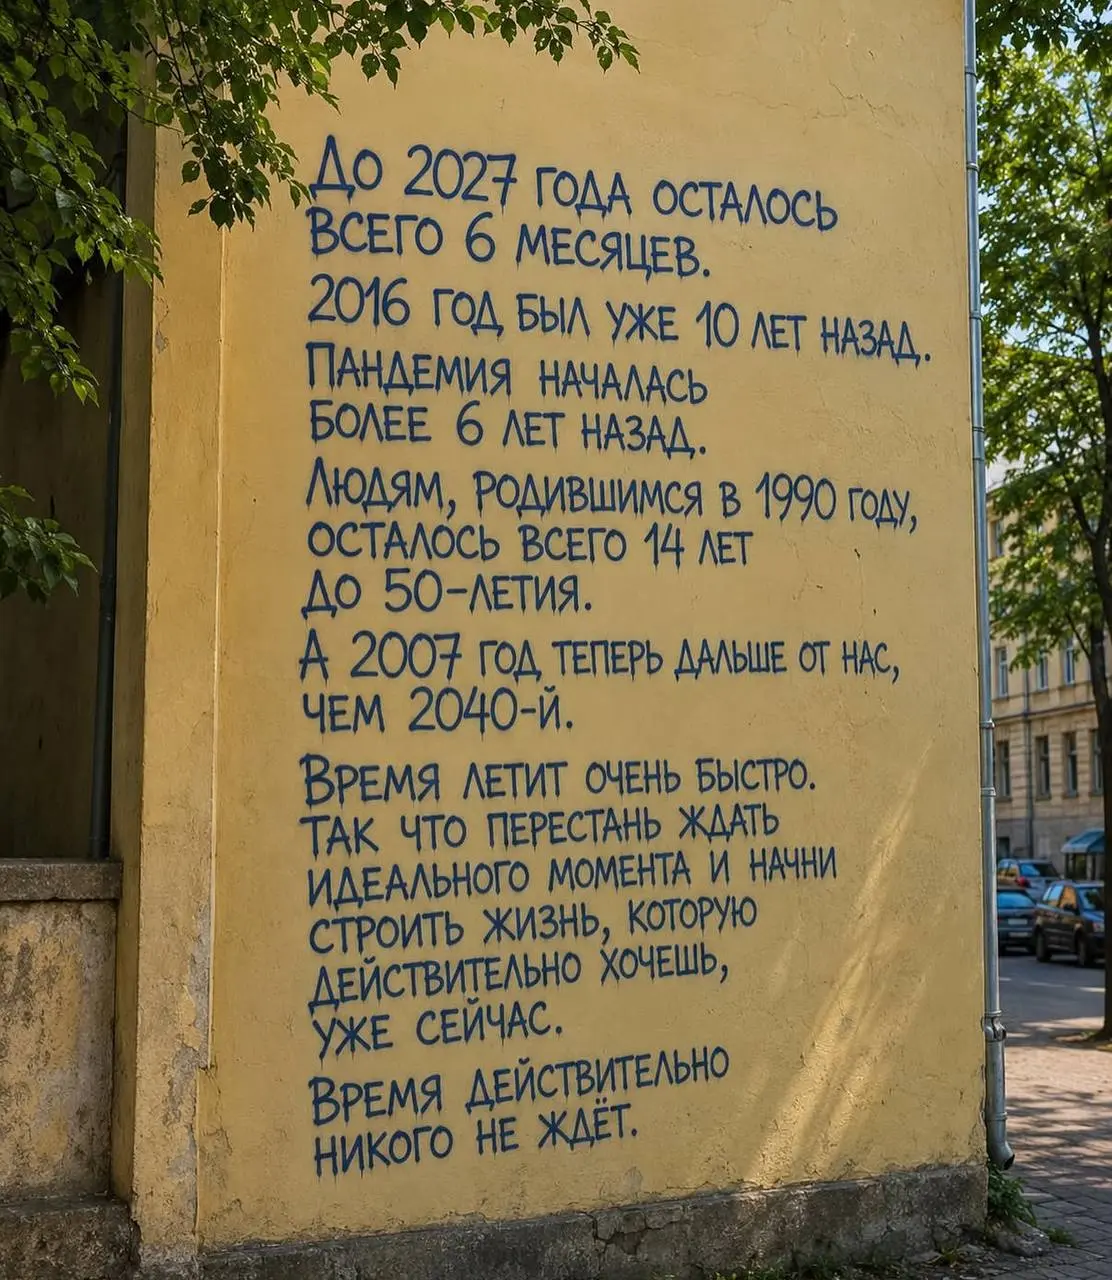 До 2027 года осталось
всего 6 месяцев.
2016 год был уже 10 лет назад.
Пандемия началась
более 6 лет назад.
Людям, родившимся в 1990 году,
осталось всего 14 лет
до 50-летия.
А 2007 год теперь дальше от нас,
чем 2040-й.
Время летит очень быстро.
Так что перестань ждать
идеального момента и начни
строить жизнь, которую
действительно хочешь,
уже сейчас.
Время действительно
никого не ждёт.